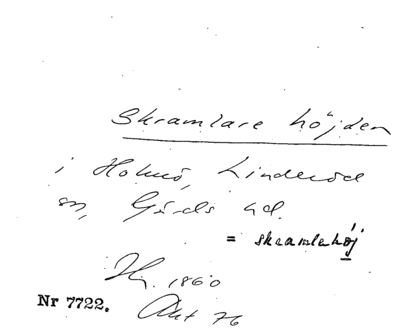 Skramlare höjden
i Holmö, Linderöd
sn, Gärds hd.
= skramlehöj
Hg. 1860
Nr 7722. Akt 76